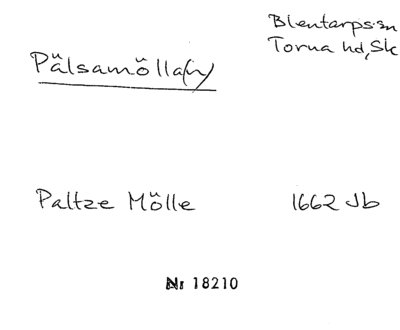 Blentarps sn
Torna hd, Sk
Pälsamölla(n)
Paltze Mölle 1662 Jb
Nr 18210